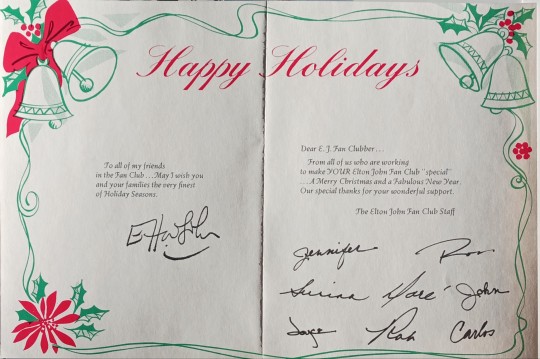 Happy Holidays
To all of my friends
in the Fan Club...May I wish you
and your families the very finest
of Holiday Seasons.
Elton John
Dear E. J. Fan Clubber...
From all of us who are working
to make YOUR Elton John Fan Club "special"
...A Merry Christmas and a Fabulous New Year.
Our special thanks for your wonderful support.
The Elton John Fan Club Staff
Jennifer Ron
John
Joyce Rob Carlos